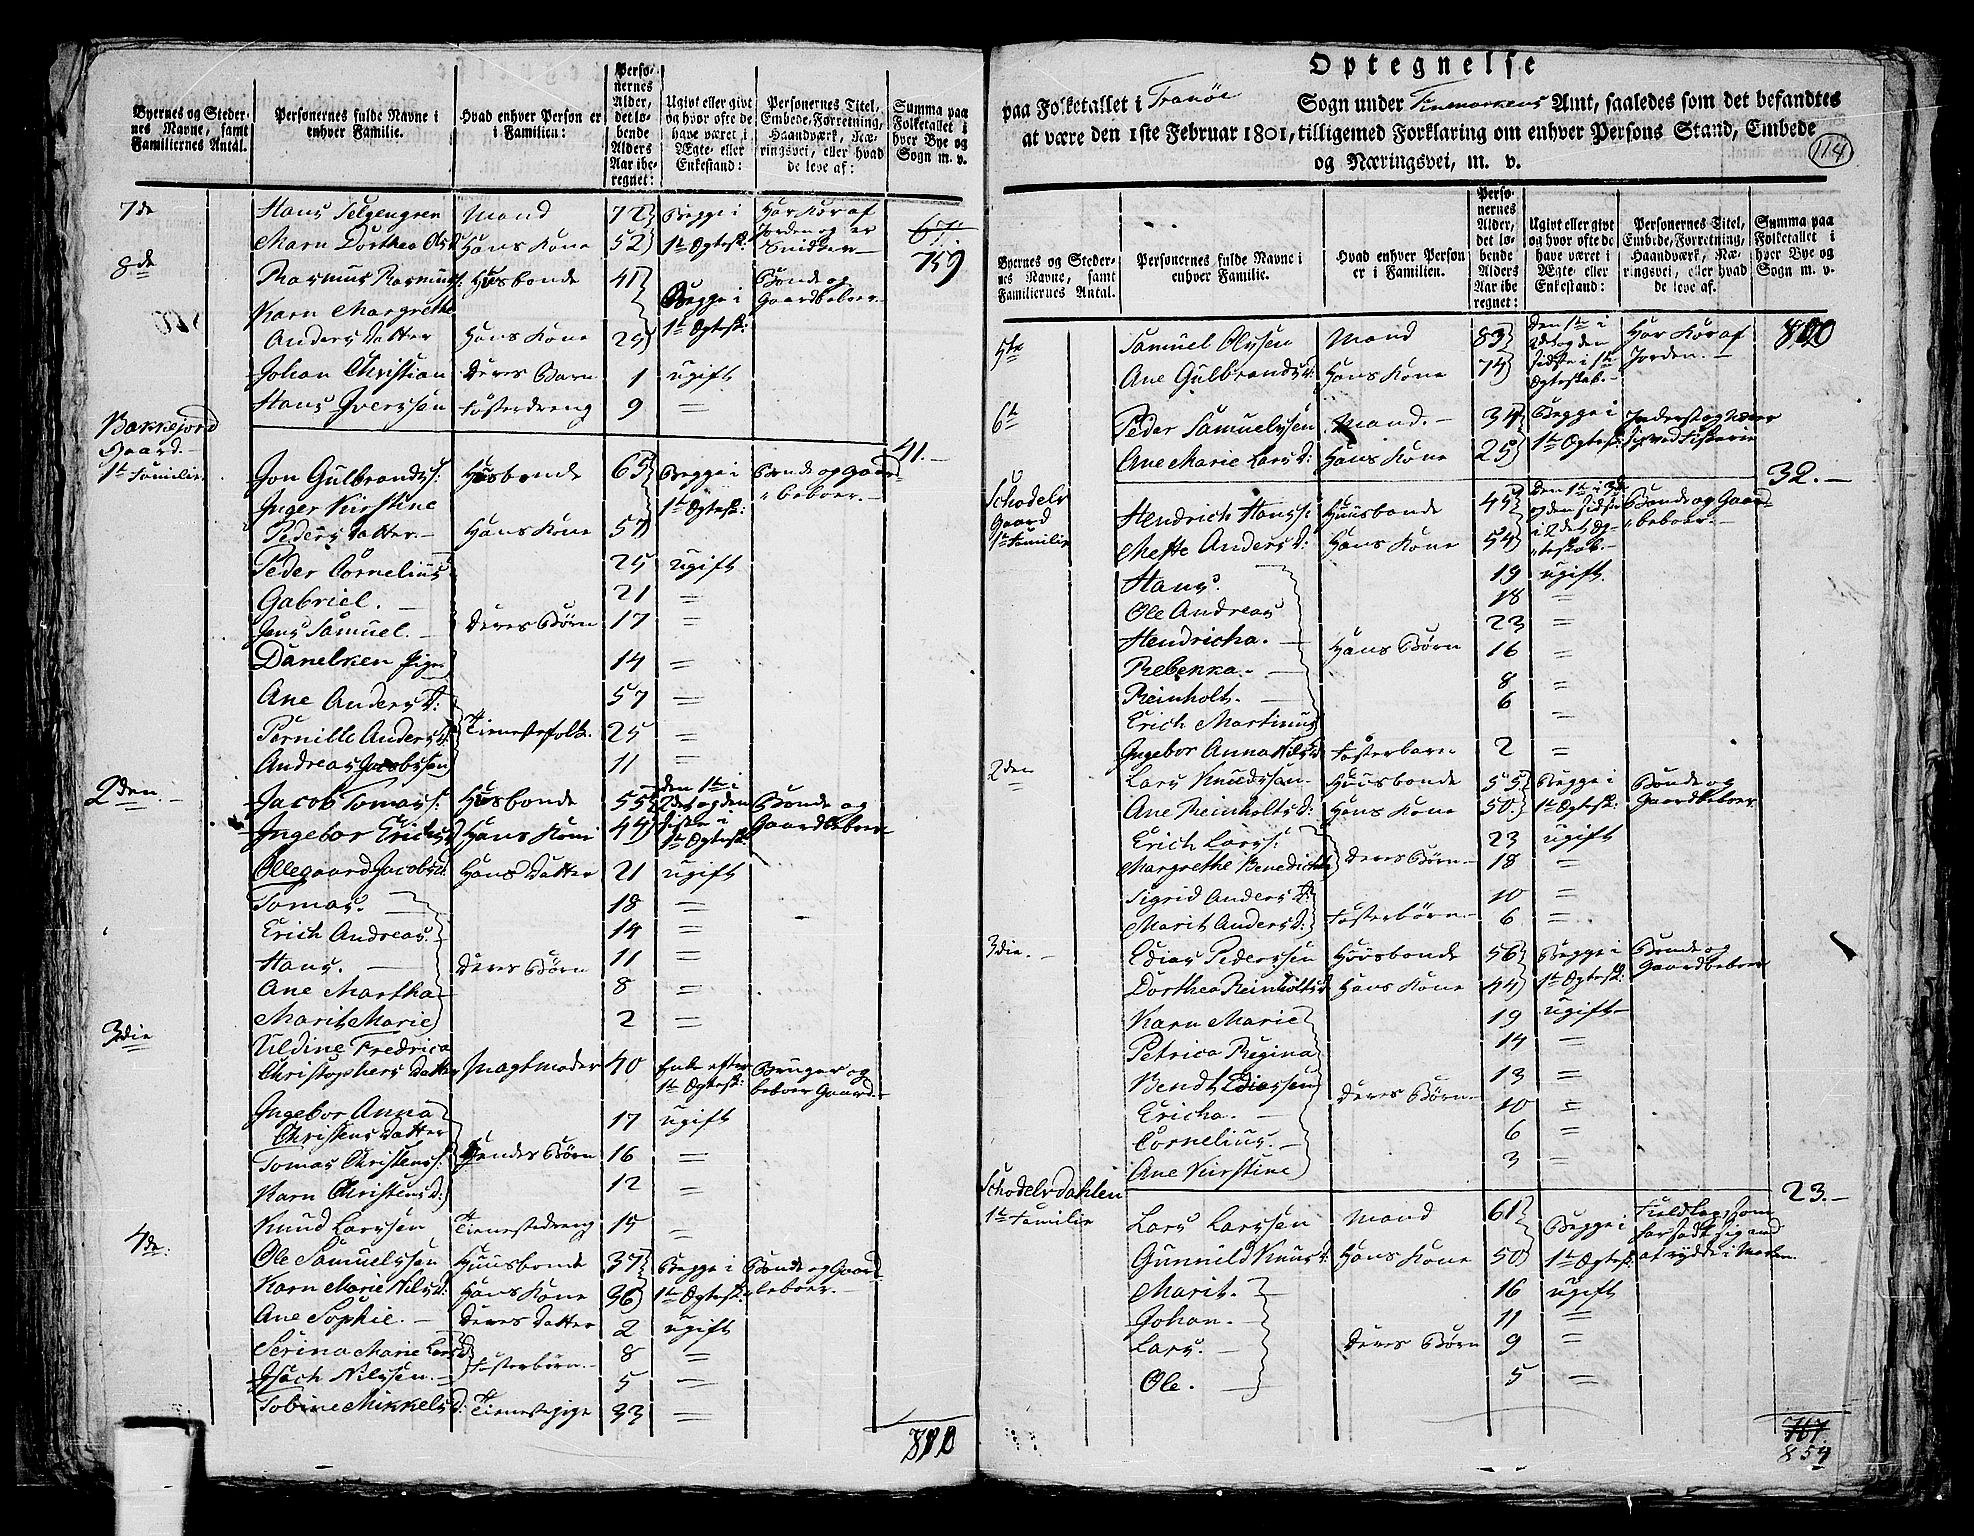 Byernes og Steder-
nes Navne, samt
Familiernes Antal.
Personernes fulde Navne i
enhver Familie.
Hvad enhver Person er
i Familien:
Perso-
nernes
Alder,
det lø-
bende
Alders
Aar ibe-
regnet:
Ugivt eller givt
og hvor ofte de
have været i
Ægte- eller
Enkestand:
Personernes Titel,
Embede, Forretning,
Haandværk, Næ-
ringsvei, eller hvad
de leve af:
Summa paa
Folketallet i
hver Bye og
Sogn m. v.
7de Hans Mand 72 Begge i Har Kør af
Jorden og er
Marn Dorthea Ols D. Hans Kone 52 1te Ægtesk: Snidker 759
8de Rasmus Rasmus: Husbonde 41 Bonde og
Karn Margrethe Begge i Gaardbeboer
Anders Datter Hans Kone 25 1te Ægtesk:
Johan Christian Deres Barn 1 ugift
Hans Iverssen Fosterdreng 9 =
Bakkejord
Gaard.
41.
1te Familie. Jon Gulbrands: Husbonde 65 Begge i Bonde og Gaard
Inger Kirstine 1te Ægtesk: beboer.
Peders Datter. Hans Kone 57
Peder Cornelius 25 ugift
Gabriel. 21 =
Jens Samuel. Deres Børn 17 =
Danelken Pige 14 =
Ane Anders D: 57 =
Pernille Anders D: Tienestefolk. 25 =
Andreas Jacobssen 11 =
2den. Jacob Tomas: Husbonde 55 den 1te i
2det og den Bonde og
Ingebor Erichs D Hans Kone 44 sidste i Gaardbeboer
1te Ægtesk:
Ollegaard Jacobs D: Hans Datter 21 ugift
Tomas. 18 =
Erich Andreas. 14 =
Hans. Deres Børn 11 =
Ane Martha 8 =
Marit Marie 2 =
3die Uldine Fredrica
Christophers Datter Magtmoder 40 Enke efter Bruger og
1te Ægtesk: beboer Gaard.
Ingebor Anna
Christens Datter 17 ugift
Tomas Christens: Hendes Børn 16 =
Karn Christens D: 12 =
Knud Larssen Tienestedreng 15 =
4de: Ole Samuelssen Huusbonde 37 Begge i Bonde og Gaard
Karn Marie Nils D: Hans Kone 36 1te Ægtesk: beboer.
Ane Sophie. Deres Datter 2 ugift
Serina Marie Lars D Fosterbørn. 8 =
Isach Nilssen. 5 =
Tobine Mikkels D: Tienestepige 33 =
800
Optegnelse
paa Folketallet i Tranøe Sogn under Finmarkens Amt, saaledes som det befandtes
at være den 1ste Februar 1801, tilligemed Forklaring om enhver Persons Stand, Embede
og Næringsvei, m. v.
114
Byernes og Steder-
nes Navne, samt
Familiernes Antal.
Personernes fulde Navne i
enhver Familie.
Hvad enhver Person
er i Familien.
Perso-
nernes
Alder,
det lø-
bende
Alders
Aar ibe
regnet:
Ugivt eller givt
og hvor ofte de
have været i
Ægte- eller
Enkestand:
Personernes Titel,
Embede, Forretning,
Haandværk, Næ-
ringsvei, eller hvad
de leve af.
Summa paa
Folketallet i
hver Bye og
Sogn m. v.
5te Samuel Olssen Mand 83 den 1te i
2det og den Har Kør af 800
Ane Gulbrands D: Hans Kone 74 sidste i 1te Jorden.
Ægteskab.
6te Peder Samuelssen Mand. 34 Begge i Inderst og nærer
Ane Marie Lars D: Hans Kone 25 1te Ægtesk: sig ved Fiskerie
32.
Schodels
Gaard
1te Familie
Hendrich Hans: Huusbonde 45 Den 1te i 3de
og den sidste Bonde og Gaard
Mette Anders D: Hans Kone 54 i 2det Æg- beboer.
teskab.
Hans. 19 ugift.
Ole Andreas 18 =
Hendricha. 23 =
Rebenka. Hans Børn 16 =
Reinholt. 8 =
Erich Martinus 6 =
Ingebor Anna Nils D Fosterbarn 2 =
2den Lars Knudssen. Huusbonde 55 Begge i Bonde og
Ane Reinholts D: Hans Kone 50 1te Ægtesk: Gaardbeboer
Erich Lars: 23 ugift
Margrethe Benedichte Deres Børn 18 =
Sigrid Anders D: 10 =
Marit Anders D: Fosterbørn. 6 =
3die. Edias Pederssen Huusbonde 56 Begge i Bonde og
Dorthea Reinholts D Hans Kone 44 1te Ægtesk: Gaardbeboer
Karn Marie 19 ugift
Petrica Regina 14 =
Bendt Ediassen Deres Børn 13 =
Ericha. 10 =
Cornelius. 6 =
Ane Kirstine 3 =
Schodelsdahlen 23.
1te Familie Lars Larssen Mand 61 Begge i Fieldlap, som
forsødt sig med
Gunnild Knus D: Hans Kone 50 1te Ægtesk: at rydde i Marken.
Marit. 16 ugift
Johan. 11 =
Lars. Deres Børn 9 =
Ole. 5 =
767
854